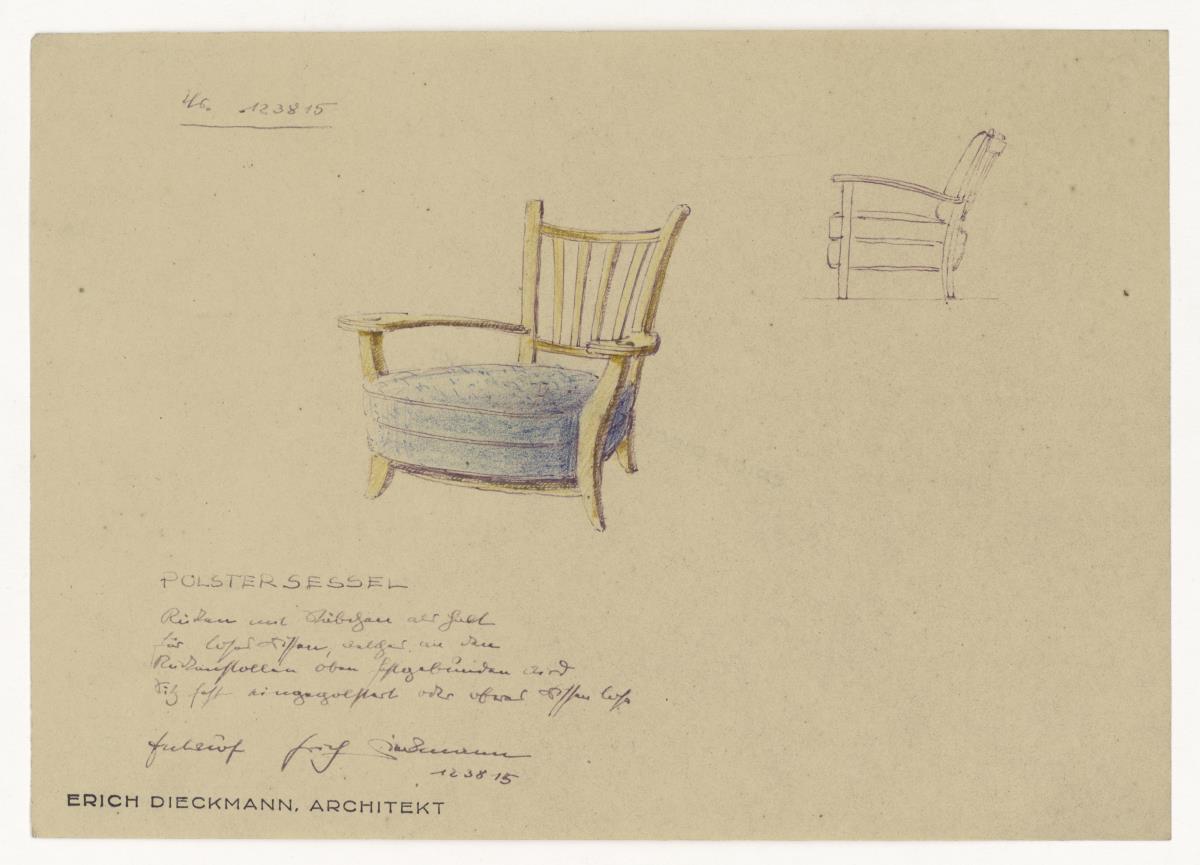 123815
POLSTERSESSEL
Rücken mit Stäbchen als Halt
für loses Kissen, welches an den
Rückenstollen oben festgebunden wird
Sitz fest eingepolstert oder oberes Kissen lose
Entwurf Erich Dieckmann
123815
ERICH DIECKMANN, ARCHITEKT